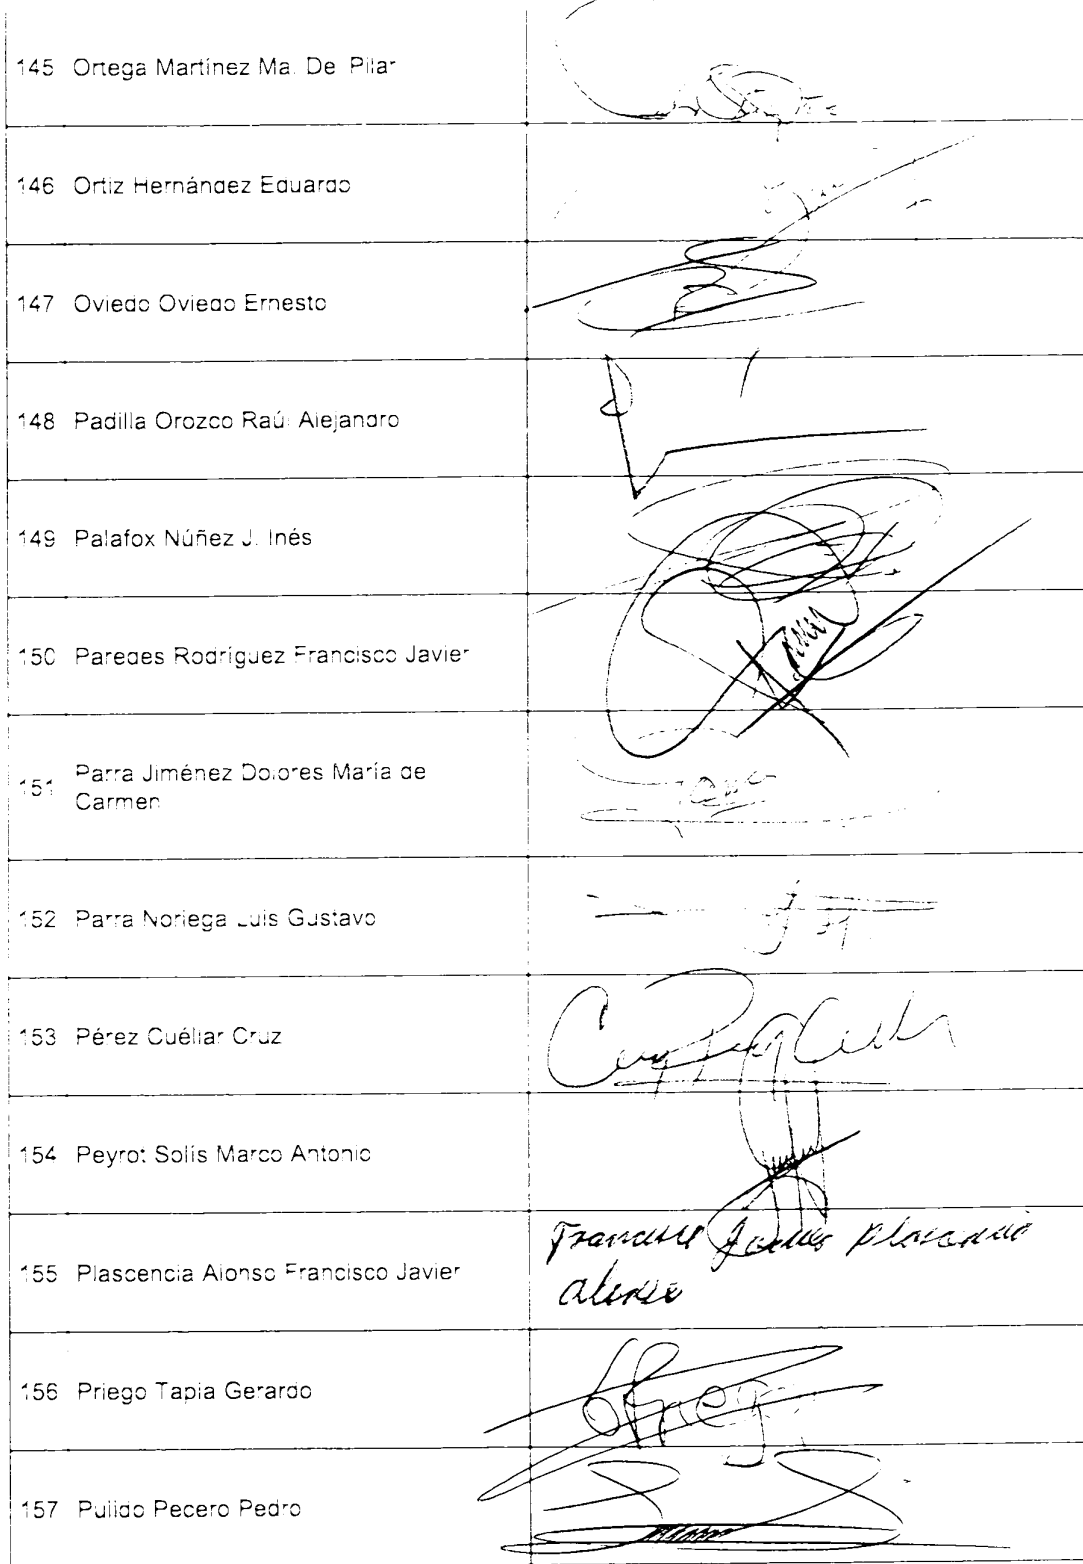 145 Ortega Martínez Ma. De Pilar
146 Ortiz Hernández Eduardo
147 Oviedo Oviedo Ernesto
148 Padilla Orozco Raúl Alejandro
149 Palafox Núñez J. Inés
150 Paredes Rodríguez Francisco Javier
151 Parra Jiménez Dolores María de
Carmen
152 Parra Noriega Luis Gustavo
153 Pérez Cuéllar Cruz
154 Peyrot Solís Marco Antonio
Francisco Javier Plascencia
Alonso
155 Plascencia Alonso Francisco Javier
156 Priego Tapia Gerardo
157 Pulido Pecero Pedro